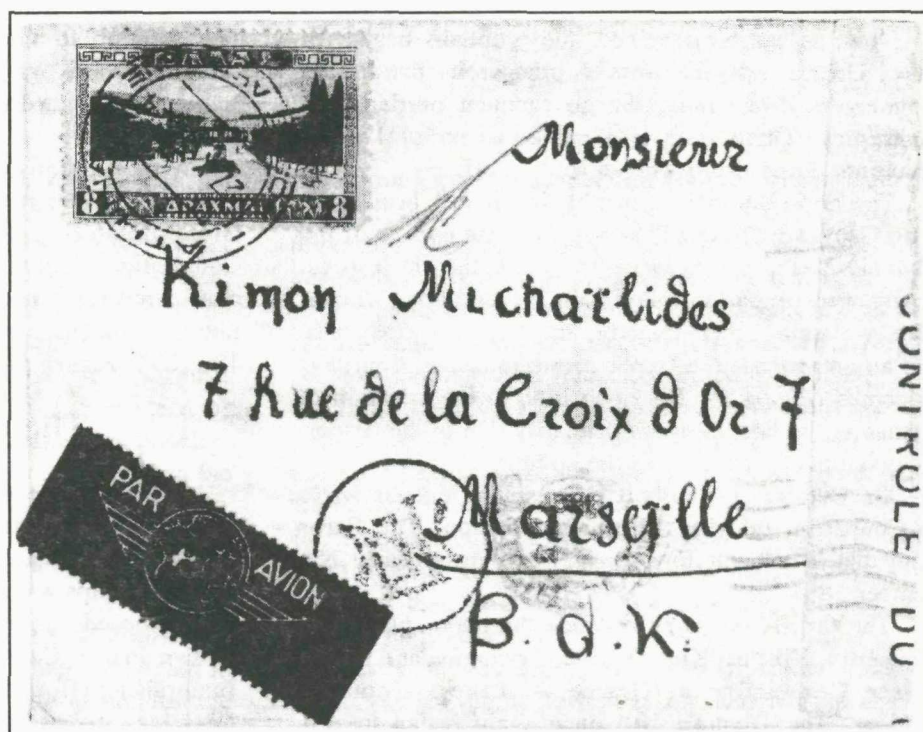 8 ΔΡΑΧΜΑΙ 8
Monsieur
Kimon Michaelides
7 Rue de la Croix d Or 7
Marseille
B. d. R.
PAR AVION
CONTROLE DU